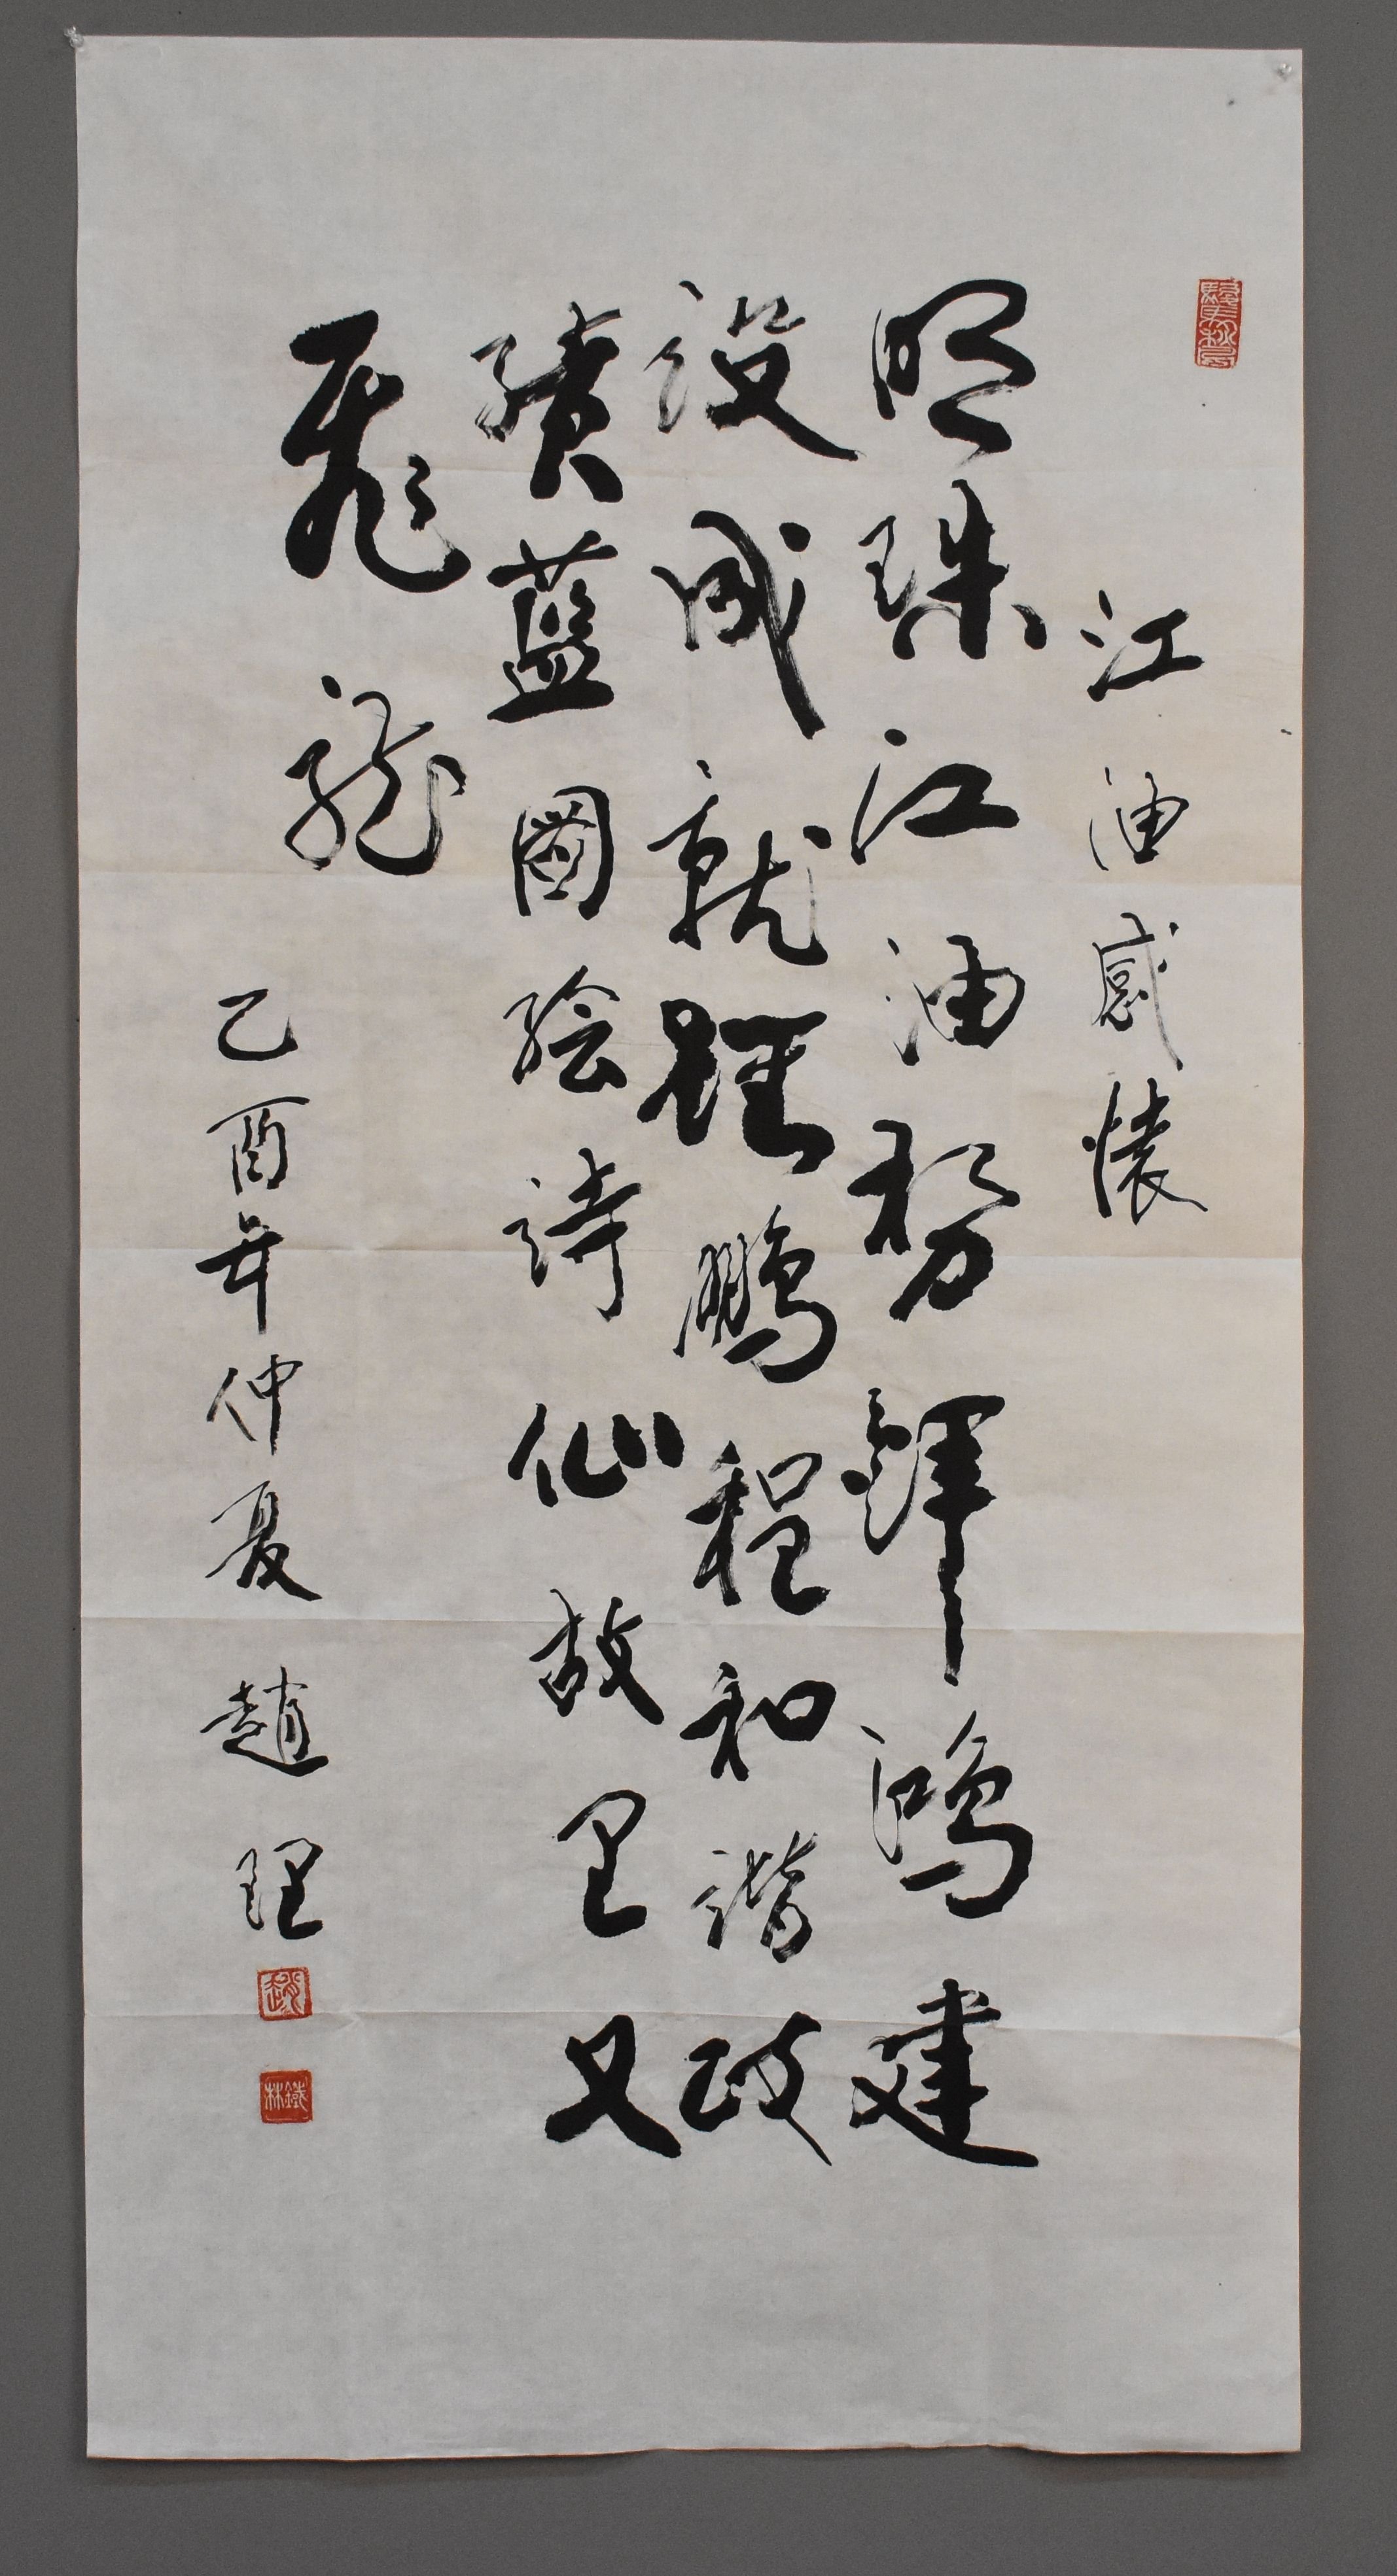 江油感懷
明珠江油鐸鴻建
設成就鵬程和諧政
績藍圖繪詩仙故里又
飛龍
乙酉年仲夏 趙理
趙
鐵林